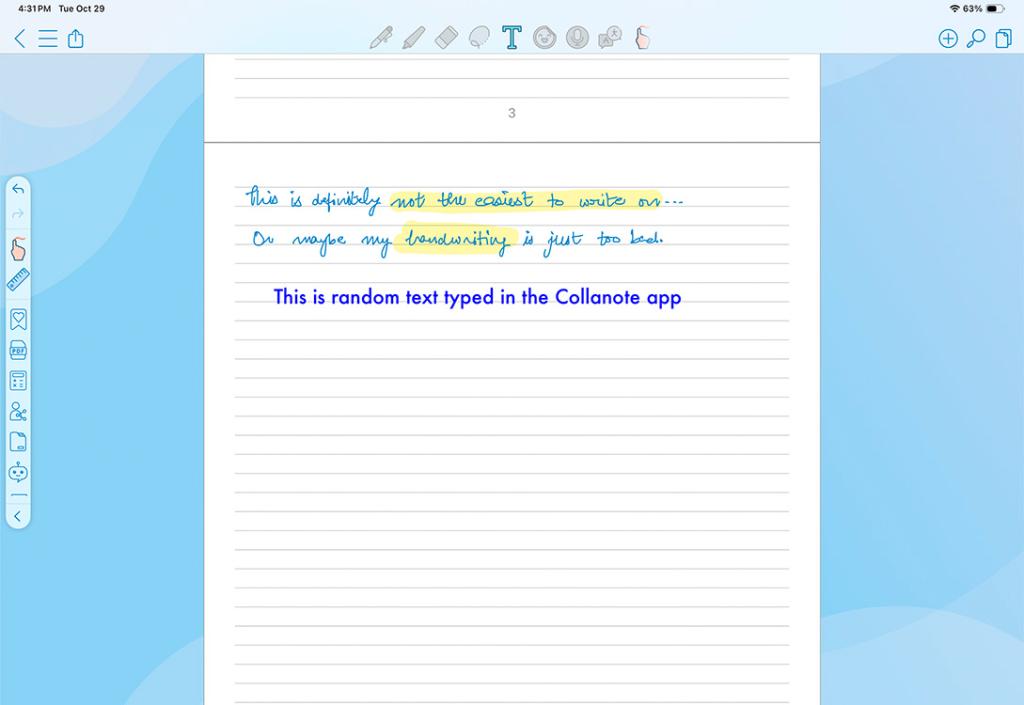 4:31PM Tue Oct 29
63%
3
This is definitely not the easiest to write on...
Or maybe my handwriting is just too bad.
This is random text typed in the Collanote app
T
PDF